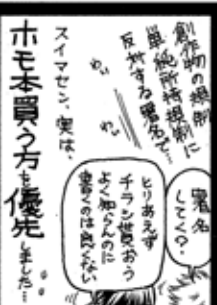 創作物の規制
単純所持規制に
反対する署名で…
わい
わい
署名
してく?
とりあえず
チラシ貰おう
よく知らんのに
書くのは良くない
スイマセン、実は、
ホモ本買う方を優先しました…